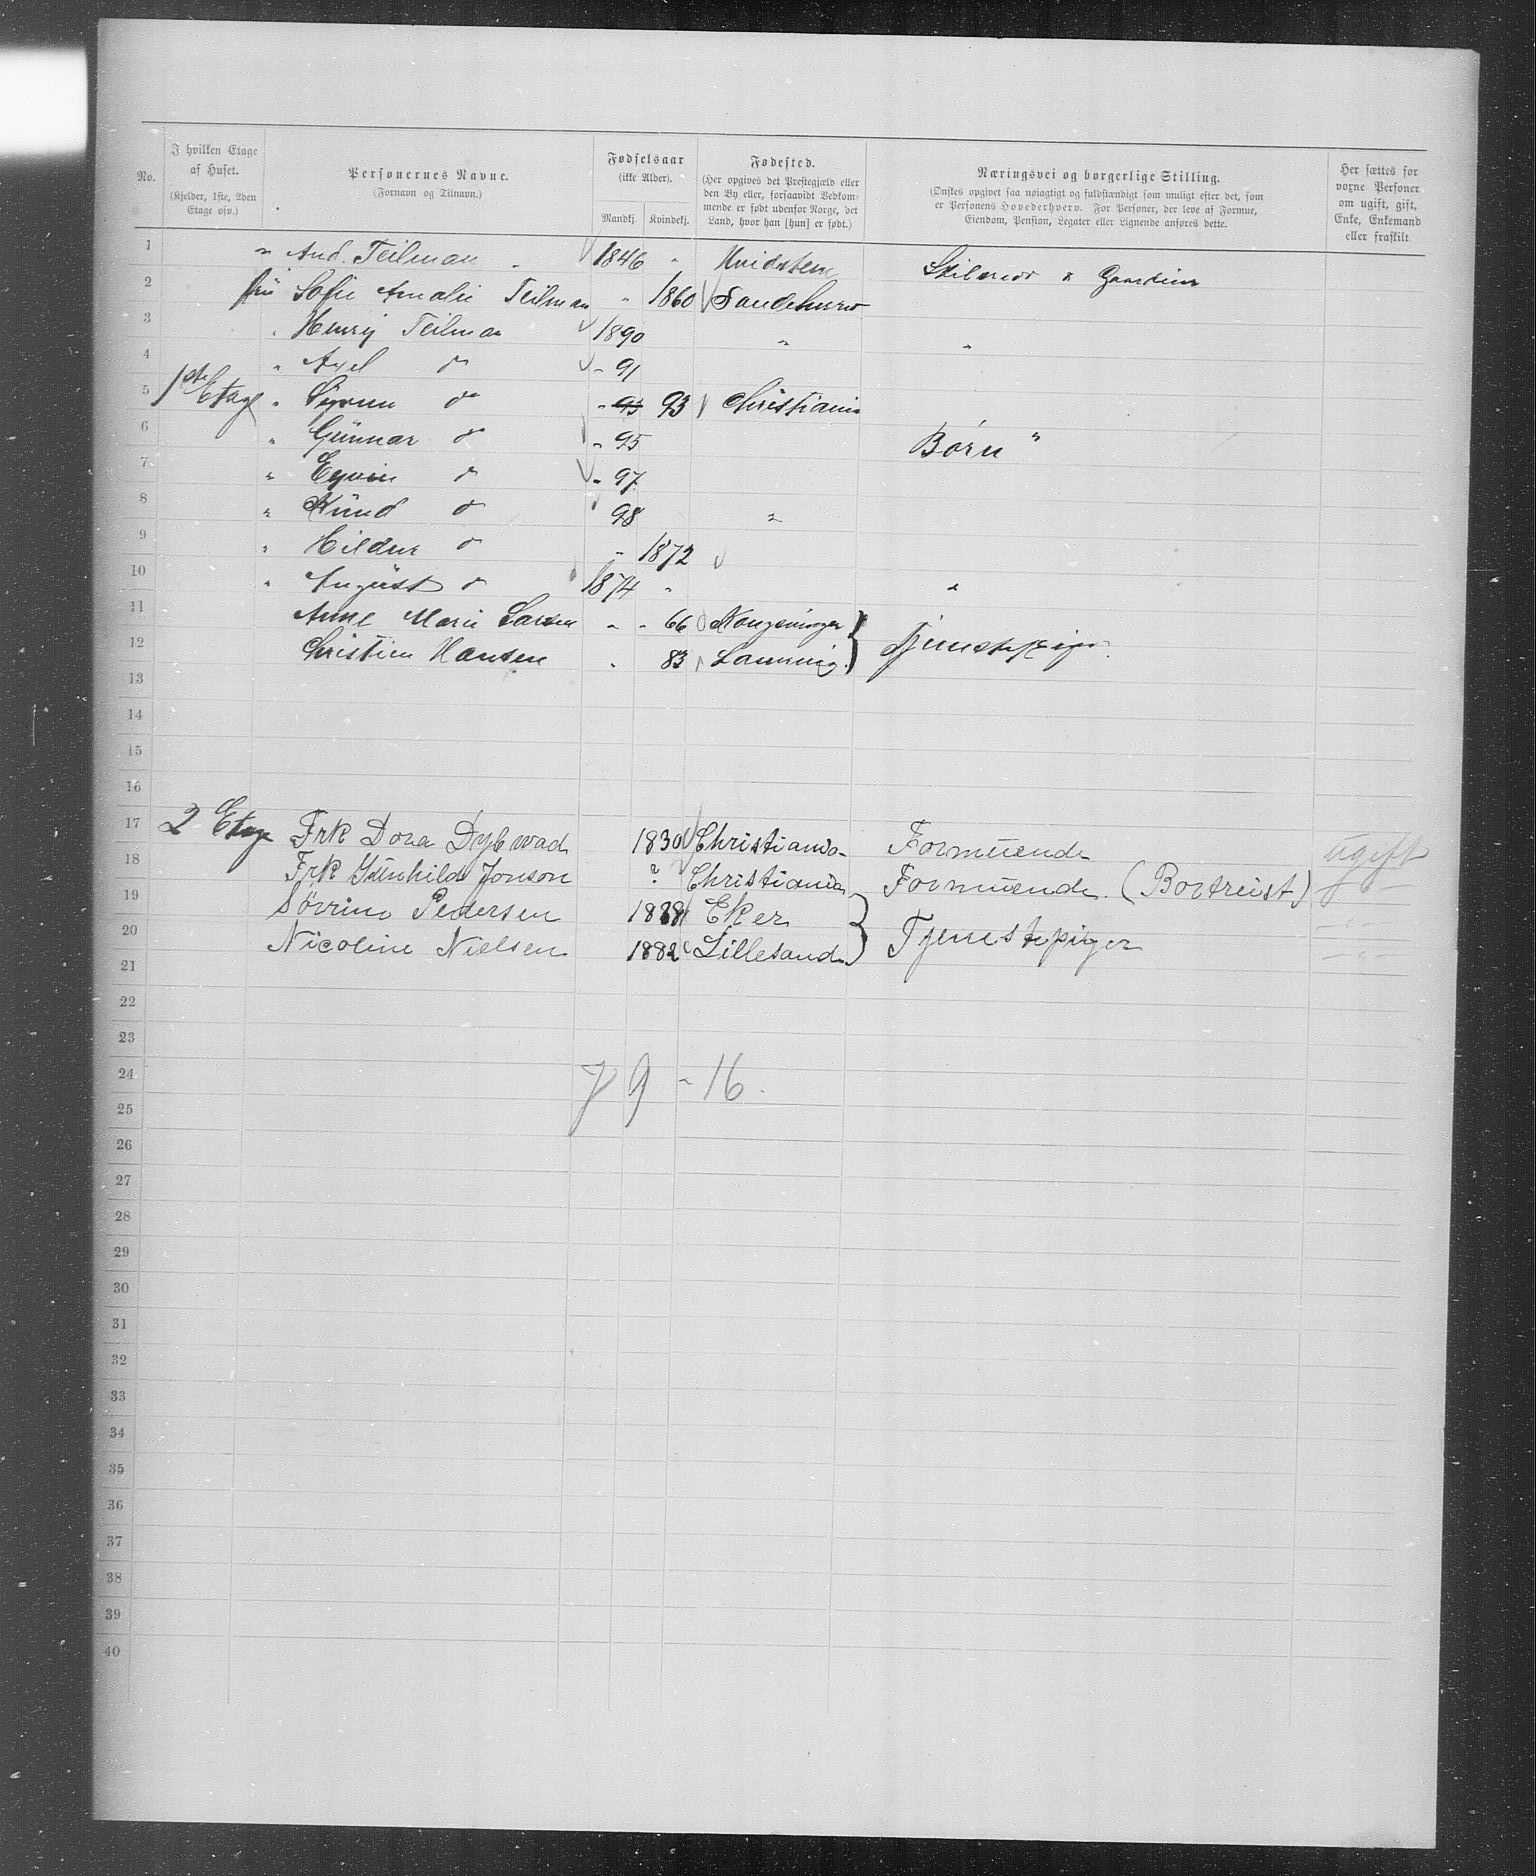 No.
I hvilken Etage af Huset. (Kjelder, 1ste, 2den Etage osv.)
Personernes Navne. (Fornavn og Tilnavn.)
Fødselsaar (ikke Alder). Mandkj. Kvindekj.
Fødested. (Her opgives det Prestegjæld eller den By eller, forsaavidt Vedkommende er født udenfor Norge, det Land, hvor han [hun] er født.)
Næringsvei og borgerlige Stilling. (Ønskes opgivet saa nøiagtigt og fuldstændigt som muligt efter det, som er Personens Hovederhverv. For Personer, der leve af Formue, Eiendom, Pension, Legater eller Lignende anføres dette.)
Her sættes for voxne Personer om ugift, gift, Enke, Enkemand eller fraskilt.
1 " And. Teilman 1846 " Hvidsten
2 Frü Sofie Amalie Teilman " 1860 Sandeherred
3 " Henry Teilman 1890 " "
4 " Axel do - 91
5 1ste Etage " do " 95 93 Christiania
6 " Günnar do - 95 Børn "
7 " Eyvin do - 97
8 " Knüd do 98 "
9 " Hildur do " 1872
10 " Aügüst do 1874 " "
11 Anne Marie Larsen " - 66 Kongsvinger } Tjenestepiger.
12 Christien Hansen " 83
13
14
15
16
17 2 Etage Frk Dora Dybwad 1830 Christiania Formüende ugift
18 Frk Günhild Jonson ? Christiania Formüende. (Bortreist) - " -
19 Sørrine Pedersen Eker } Tjenestepiger - " -
20 Nicoline Nielsen 1882 Lillesand - " -
21
22
23
24 7 9 - 16.
25
26
27
28
29
30
31
32
33
34
35
36
37
38
39
40